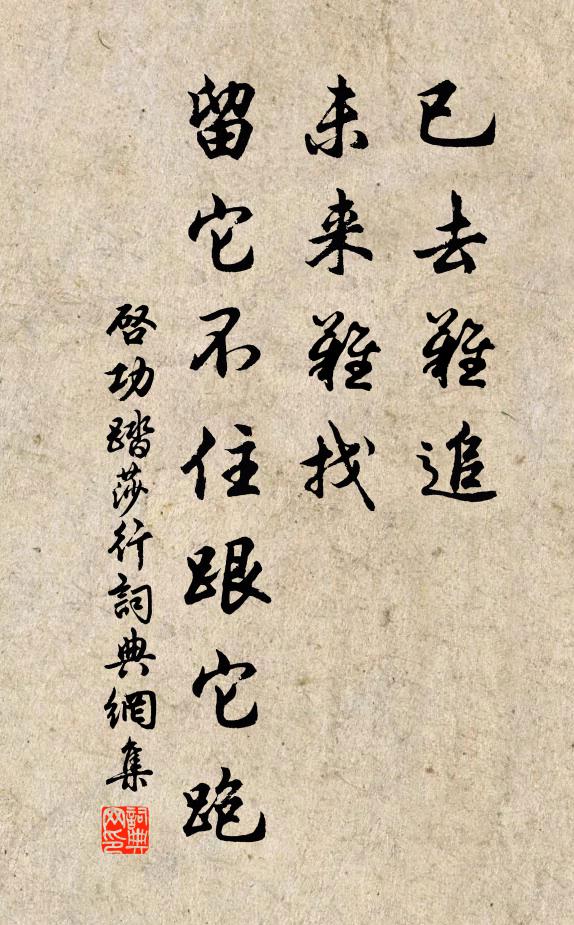 已去難追
未来難找
留它不住跟它跑
啓功踏莎行詞典網集
詞典
网印